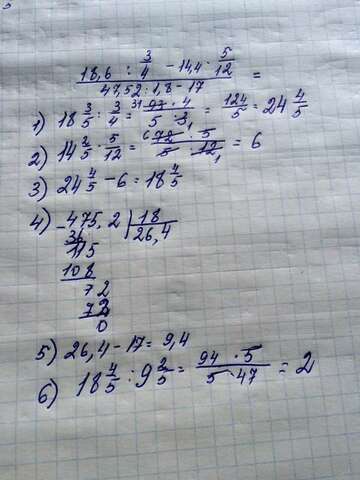 18,6 : 3/4 - 14,4 · 5/12
47,52 : 1,8 - 17 =
1) 18 3/5 : 3/4 = 31 93 · 4 / 5 · 3 1 = 124/5 = 24 4/5
2) 14 2/5 · 5/12 = 6 72 · 5 / 5 · 12 1 = 6
3) 24 4/5 - 6 = 18 4/5
4) - 475,2 | 18
36 26,4
115
108
72
72
0
5) 26,4 - 17 = 9,4
6) 18 4/5 : 9 2/5 = 94 · 5 / 5 · 47 = 2